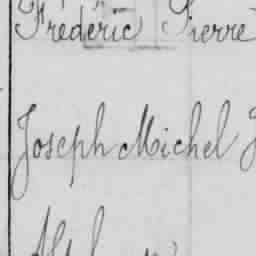 Fréderic Pierre
Joseph Michel